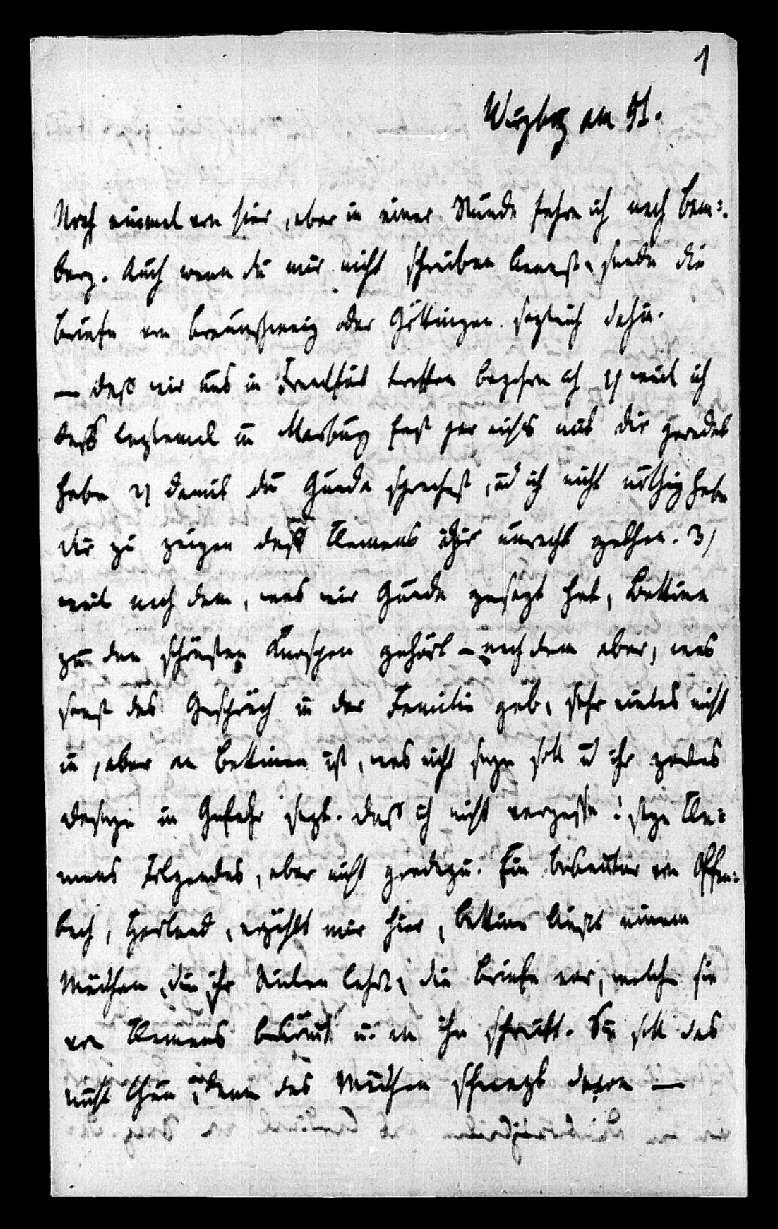 1
Würzbrg am 5t.
Noch einmal von hier, aber in einer Stunde fahre ich nach Bam=
berg. Auch wenn du mir nicht schreiben kannst, sende die
Briefe von Braunschweig oder Göttingen sogleich dahin.
— daß wir uns in Frankfurt treffen begehre ich 1) weil ich
daß leztemal in Marburg fast gar nichts mit dir geredet
habe 2) damit du Gunda sprechest, und ich nicht nöthig habe
dir zu zeigen daß Klemens ihr unrecht gethan. 3)
weil nach dem, was mir Gunda gesagt hat, Bettine
zu den schönsten Knospen gehört — nach dem aber, was
sonst das Gespräch in der Familie gab, sehr vieles nicht
in, aber an Bettinen ist, was nicht seyn soll und ihr
in Gefahr sezt. Daß ich nicht vergesse! sage Kle=
mens Folgendes, aber nicht geradezu. Ein von Offen=
bach, erzählt mir hier, Bettine ließt einem
Mädchen, die ihr lehrt, die Briefe vor, welche sie
von Klemens bekömt u. an ihn schreibt. Sie soll das
nicht thun, denn das Mädchen schwazt davon —